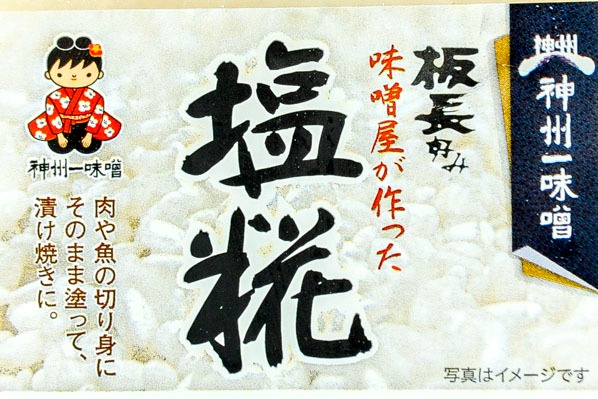 神州
神州一味噌
板長好み
味噌屋が作った
塩糀
神州一味噌
肉や魚の切り身に
そのまま塗って、
漬け焼きに。
写真はイメージです